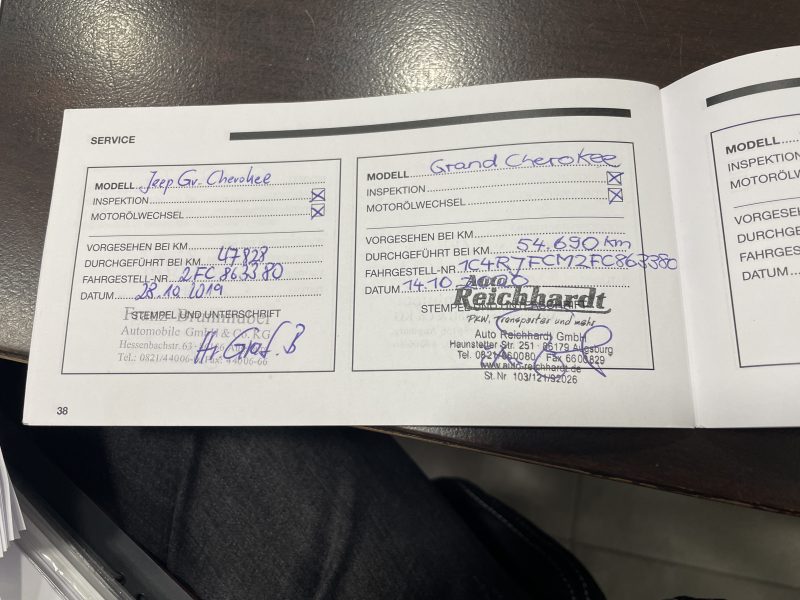 SERVICE
MODELL Jeep Gr. Cherokee
INSPEKTION
MOTORÖLWECHSEL
VORGESEHEN BEI KM
DURCHGEFÜHRT BEI KM 47828
FAHRGESTELL-NR. 2FC863380
DATUM 28.10.2019
STEMPEL UND UNTERSCHRIFT
Automobile GmbH & Co. KG
Hessenbachstr. 63
Tel.: 0821/44006 Fax: 44006-66
38
MODELL Grand Cherokee
INSPEKTION
MOTORÖLWECHSEL
VORGESEHEN BEI KM
DURCHGEFÜHRT BEI KM 54.690 km
FAHRGESTELL-NR. 1C4RJFCM2FC863380
DATUM 14.10
STEMPEL
Auto
Reichhardt
PKW, Transporter und mehr
Auto Reichhardt GmbH
Haunstetter Str. 251 · 86179 Augsburg
Tel. 0821-660080 Fax 6600820
www.auto-reichhardt.de
St. Nr. 103/121/92026
MODELL
INSPEKTION
MOTORÖLW
VORGESEHE
DURCHGEFÜ
FAHRGEST
DATUM